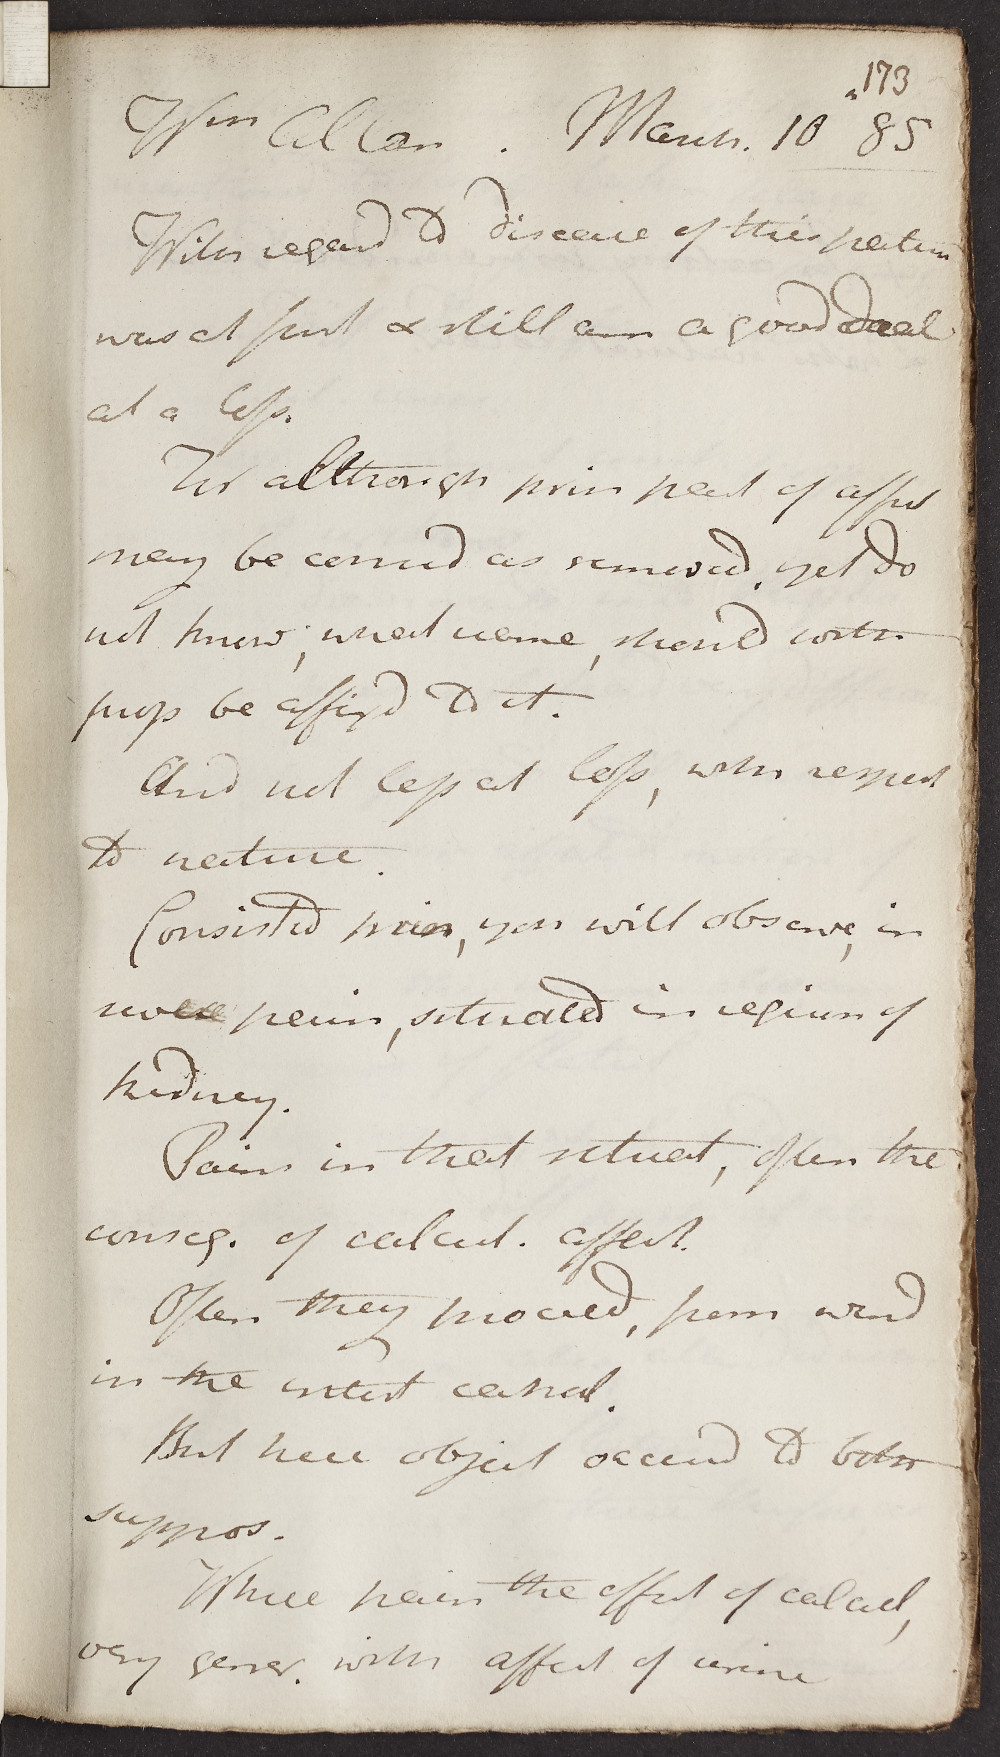 173
Wm Allan . March. 10 85
With regard to disease of this patien
was at first & still am a good deal
at a loss.
For although prin part of affect
may be consid as removed, yet do
not know, what name, should with
prop be affixd to it.
And not less at loss, with respect
to nature.
Consisted prin, you will observe, in
pain, situated in region of
kidney.
Pains in that situat, often the
conseq. of calcul. affect.
Often they proceed, from wind
in the intest canal.
But here object occurd to both
suppos.
Where pain the effect of calcul,
very gener. with affect of urine